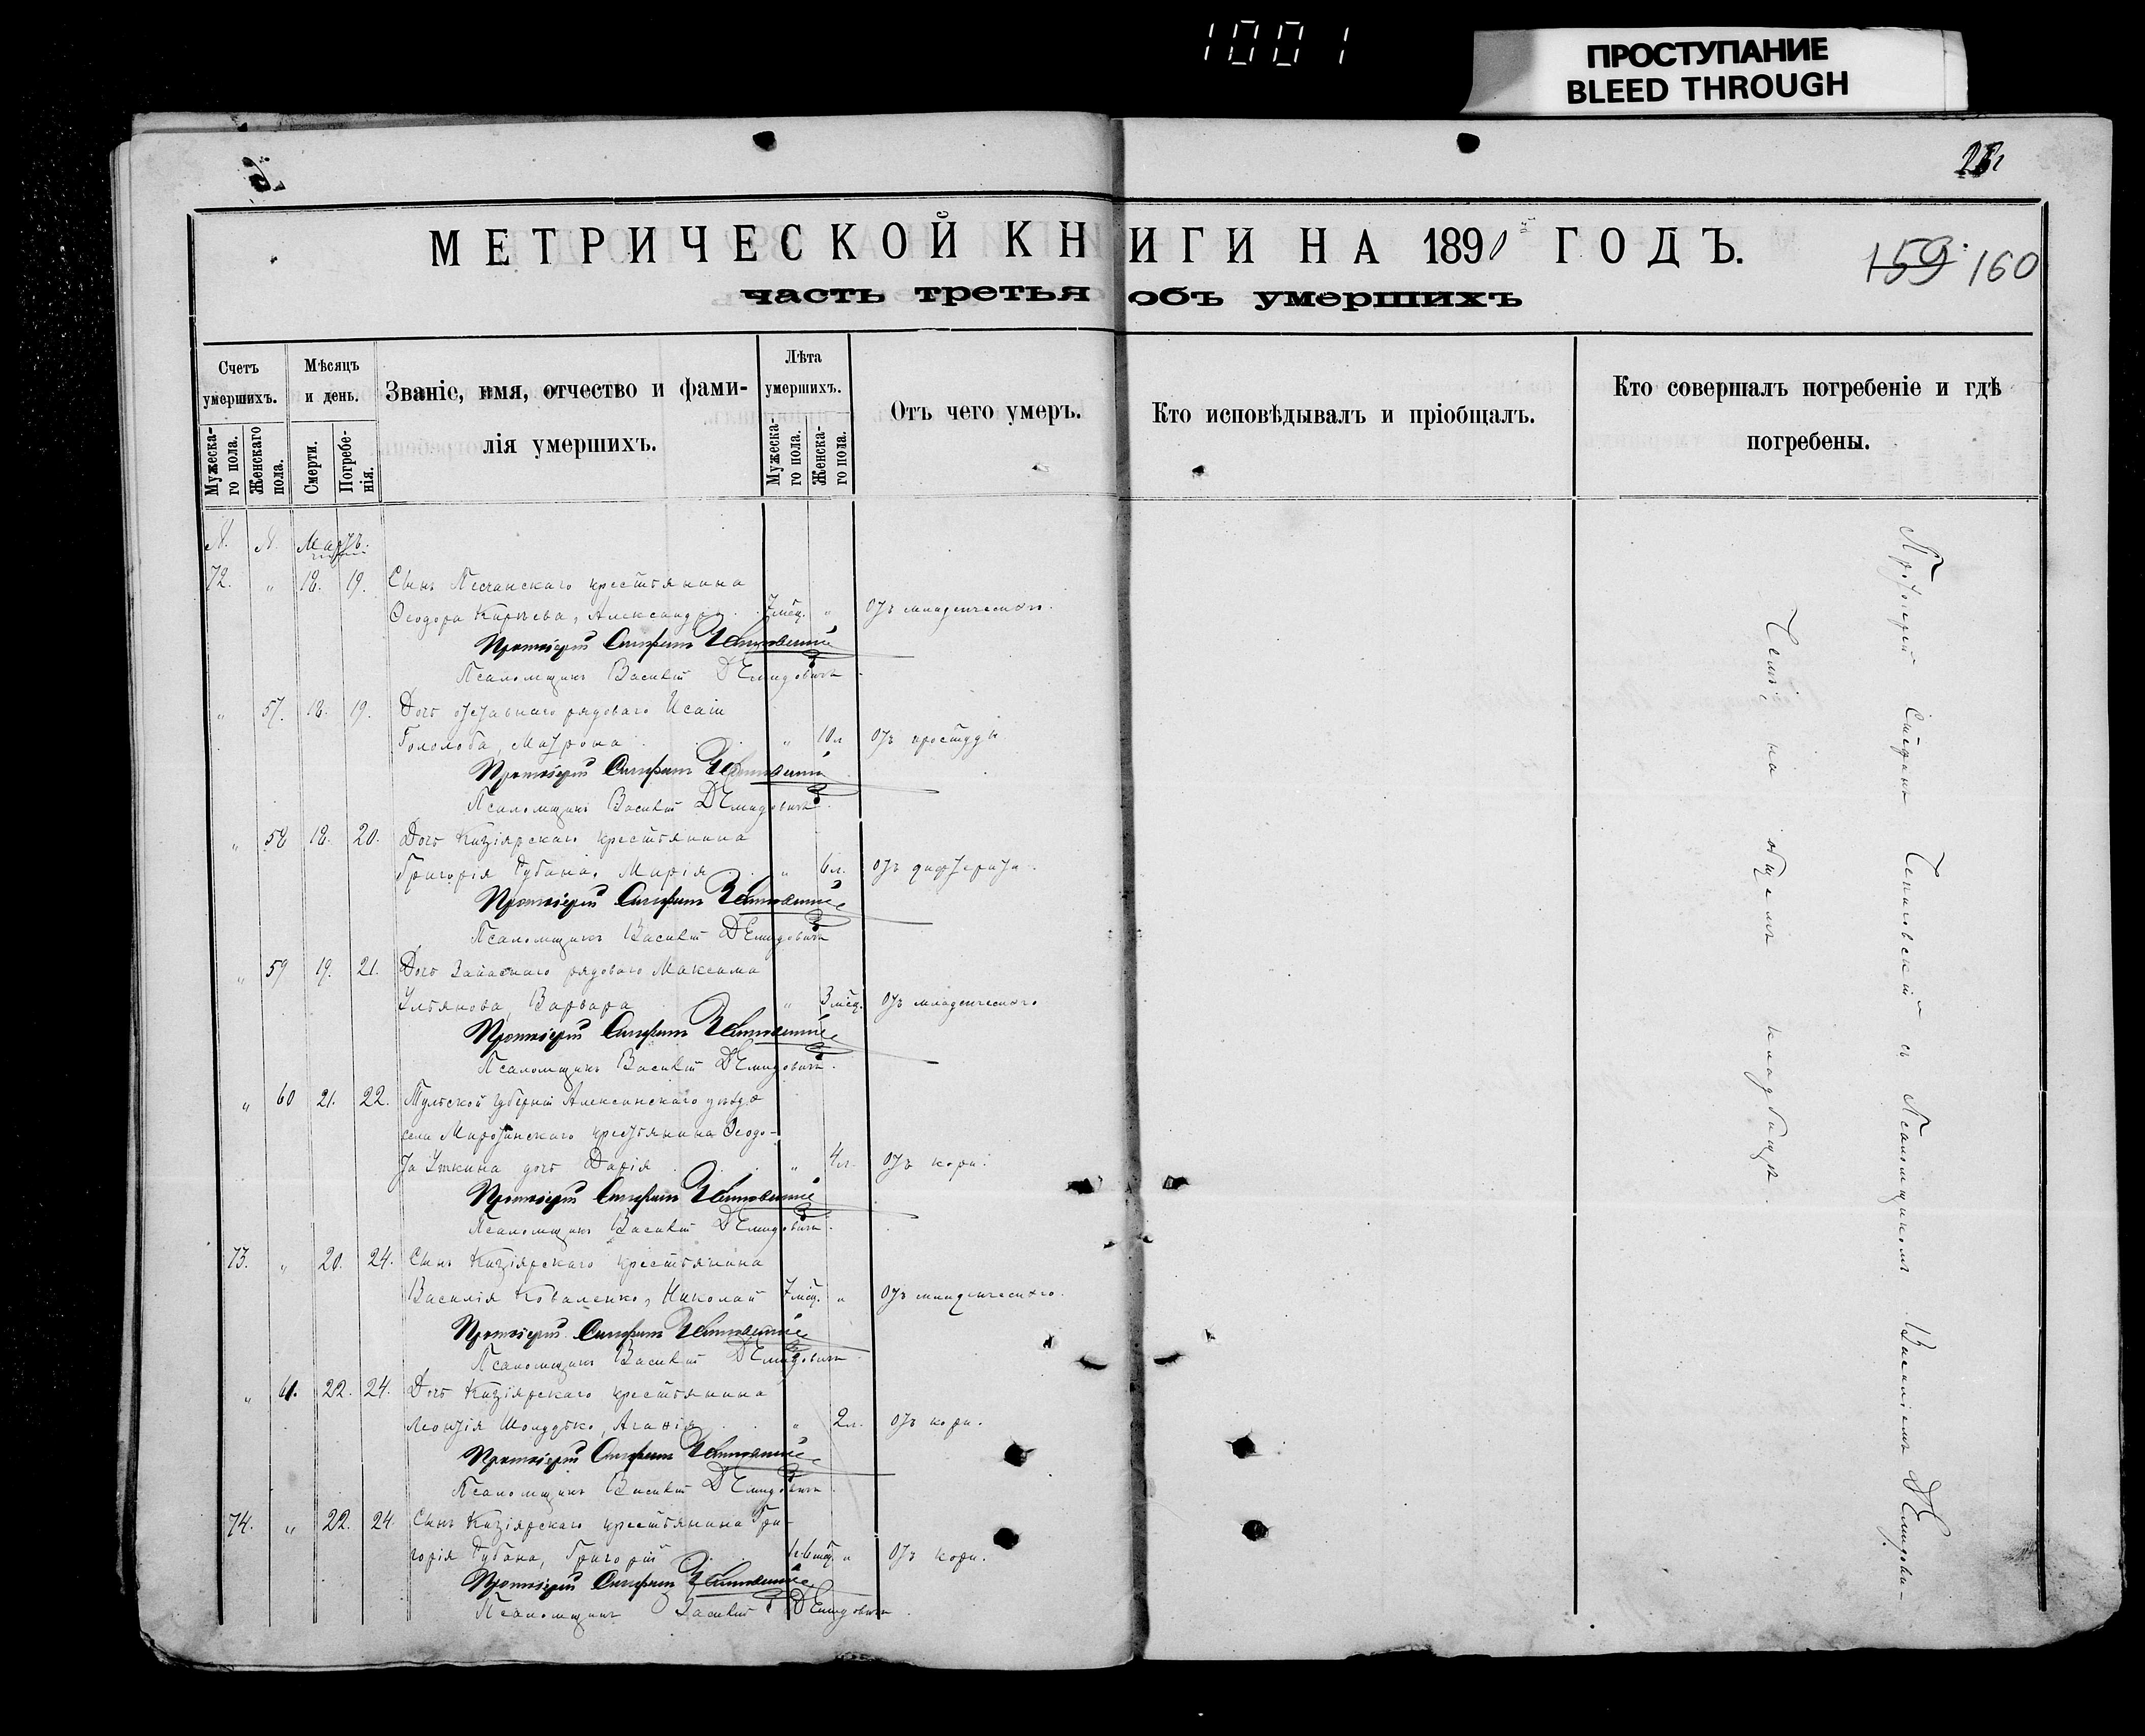 1001
ПРОСТУПАНИЕ
BLEED THROUGH
МЕТРИЧЕСКОЙ КНИГИ НА 1891 ГОДЪ.
159 160
часть третья объ умершихъ
Счетъ умершихъ.
Мѣсяцъ и день.
Званіе, имя, отчество и фами-
лія умершихъ.
Лѣта умершихъ.
Отъ чего умеръ.
Кто исповѣдывалъ и пріобщалъ.
Кто совершалъ погребеніе и гдѣ
погребены.
Мужеска-
го пола.
Женскаго
пола.
Смерти.
Погребе-
нія.
Мужеска-
го пола.
Женска-
го пола.
№. №. Мартъ.
72. „ 18. 19. Сынъ Песчанскаго крестьянина
Ѳеодора Карѣева, Александръ. 7 мѣс. „ Отъ младенческаго.
Протоіерей Стефанъ
Псаломщикъ Василій Демидовичъ
„ 57. 18. 19. Дочь отставнаго рядоваго Исаіи
Гололоба, Матрона „ 10 л. Отъ простуды
Протоіерей Стефанъ
Псаломщикъ Василій Демидовичъ.
„ 58 18. 20. Дочь Кизіярскаго крестьянина
Григорія Дубана, Марія „ 6 л. Отъ дифтерита.
Протоіерей Стефанъ
Псаломщикъ Василій Демидовичъ
„ 59 19. 21. Дочь Запаснаго рядоваго Максима
Ульянова, Варвара „ 3 мѣс. Отъ младенческаго
Протоіерей Стефанъ
Псаломщикъ Василій Демидовичъ.
„ 60 21. 22. Тульской губерніи Алексинскаго уѣзда
села крестьянина Ѳеодо-
та Уткина дочь Дарія „ 4 л. Отъ кори.
Протоіерей Стефанъ
Псаломщикъ Василій Демидовичъ.
73. „ 20. 24. Сынъ Кизіярскаго крестьянина
Василія Коваленко, Николай 7 мѣс. „ Отъ младенческаго.
Протоіерей Стефанъ
Псаломщикъ Василій Демидовичъ
„ 61. 22. 24. Дочь Кизіярскаго крестьянина
Леонтія Шолудько, Агаѳія „ 2 л. Отъ кори.
Протоіерей Стефанъ
Псаломщикъ Василій Демидовичъ.
74. „ 22. 24. Сынъ Кизіярскаго крестьянина Гри-
горія Дубана, Григорій 1 г. 6 мѣс. „ Отъ кори.
Протоіерей Стефанъ
Псаломщикъ Василій Демидовичъ.
Протоіерей Стефанъ съ Псаломщикомъ Василіемъ Демидови-
чемъ; на общемъ кладбищѣ.